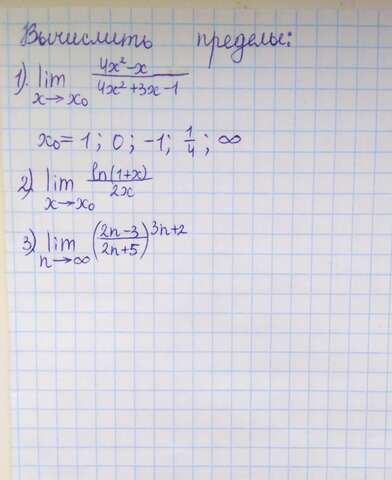 Вычислить пределы:
1). lim x→x₀ (4x²-x)/(4x²+3x-1)
x₀=1; 0; -1; 1/4; ∞
2) lim x→x₀ ln(1+x)/2x
3) lim n→∞ ((2n-3)/(2n+5))^(3n+2)